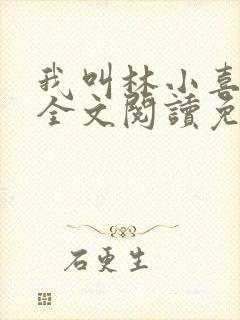 我叫林小喜
全文閱讀免
石更生